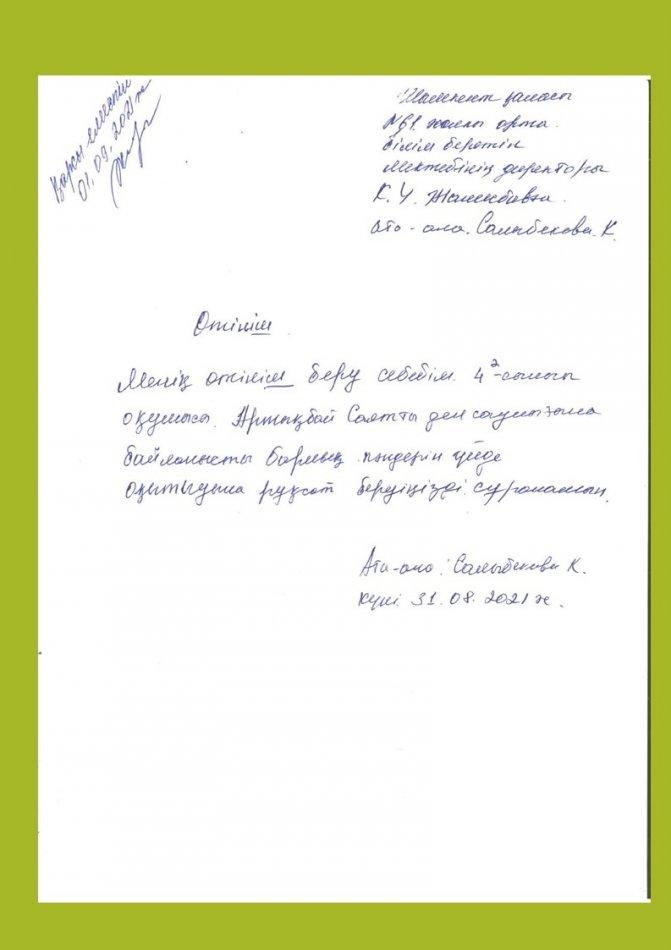 Қарсы емеспін
01.09.2021ж
Шымкент қаласы
№91 жалпы орта
білім беретін
мектебінің директоры
К.Ч.
Ата-ана. Салыбекова. К.
Өтініш
Менің өтініш беру себебім 4²-сынып
оқушысы Артықбай Саятты ден саулығына
байланысты барлық пәндерін үйде
оқытуыма рұқсат беруіңізді сұранамын.
Ата-ана: Салыбекова К.
Күні 31.08.2021ж.